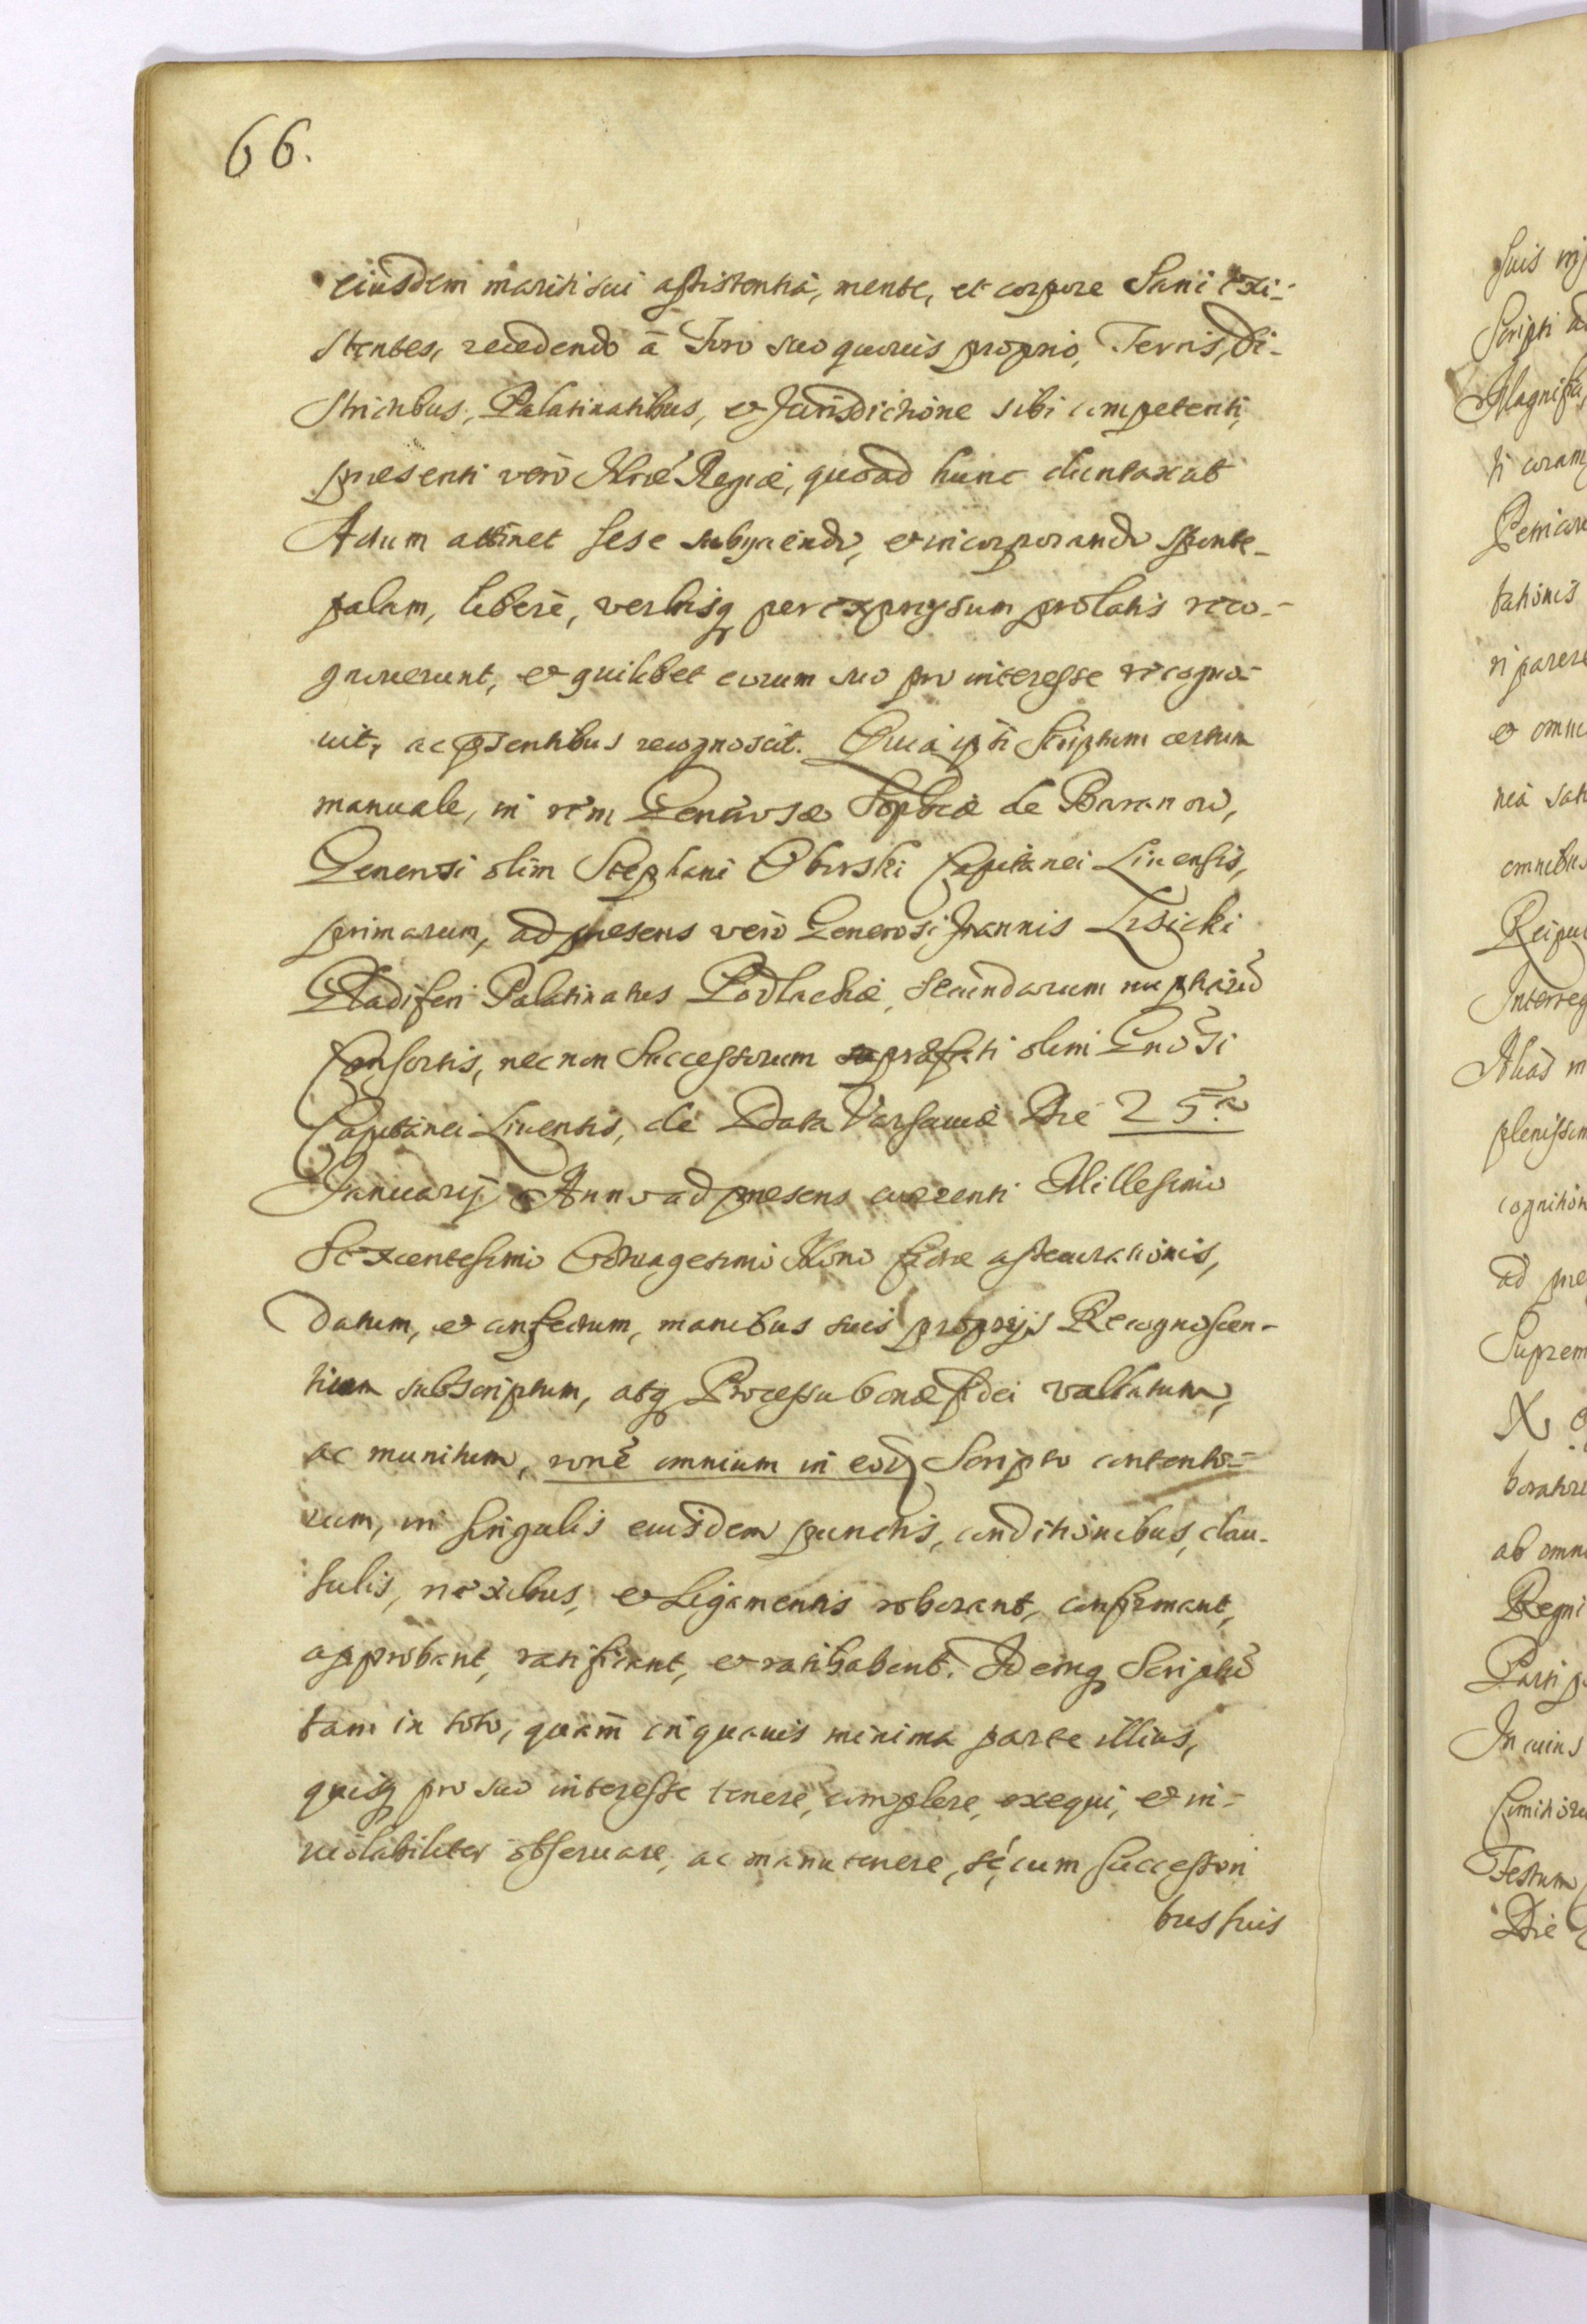 66.
eiusdem mariti sui assistentiâ, mente, et corpore Sani exi-
stentes, recedendo â Foro suo quovis proprio, Terris, Di-
strictibus, Palatinatibus, et Jurisdictione sibi competenti,
præsenti verò Mtricæ Regiæ, quoad hunc duntaxat
Actum attinet sese subijciendo, et incorporando sponte,
palam, liberè, verbisq per expressum prolatis reco-
gnoverunt, et quilibet eorum suo pro interesse recogno-
uit, ac pñsentibus recognoscit. Quia ipsi Scriptum certum
manuale, in rem Generosæ Sophiæ de Baranow,
Generosi olim Stephani Oborski Capitanei Liuensis,
primarum, ad præsens verò Generosi Joannis Lisicki
Gladiferi Palatinatus Podlachiæ, secundarum nuptiarũ
Consortis, nec non Successorum præfati olim Gnõsi
Capitanei Liuensis, de Data Varsauiæ Die 25ta
Januarij Anno ad præsens currenti Millesimo
Sexcentesimo Octuagesimo Nono sidæ assecurationis,
datum, et confectum, manibus suis proprijs Recognoscen-
tium subscriptum, atq Processu bonæ fidei vallatum,
ac munitum, rõne omnium in eod Scripto contento-
rum, in singulis eiusdem punctis, conditionibus, clau-
sulis, nexibus, et Ligamentis roborant, confirmant,
approbant, ratificant, et ratihabent. Idemq Scriptũ
tam in toto, quàm in quauis minima parte illius,
quisq pro suo interesse tenere, complere, exequi, et in-
uiolabiliter obseruare, ac manutenere, sè, cum successori
bus suis
Suis
Scripti
Magnifi
ti coram
tationis
ri parere
et omni
omnibus
Reipu
Interreg
Alias m
plenissim
cognition
ad præ
Suprem
ab omni
Regni
Parti
In cuius
Festum
Die